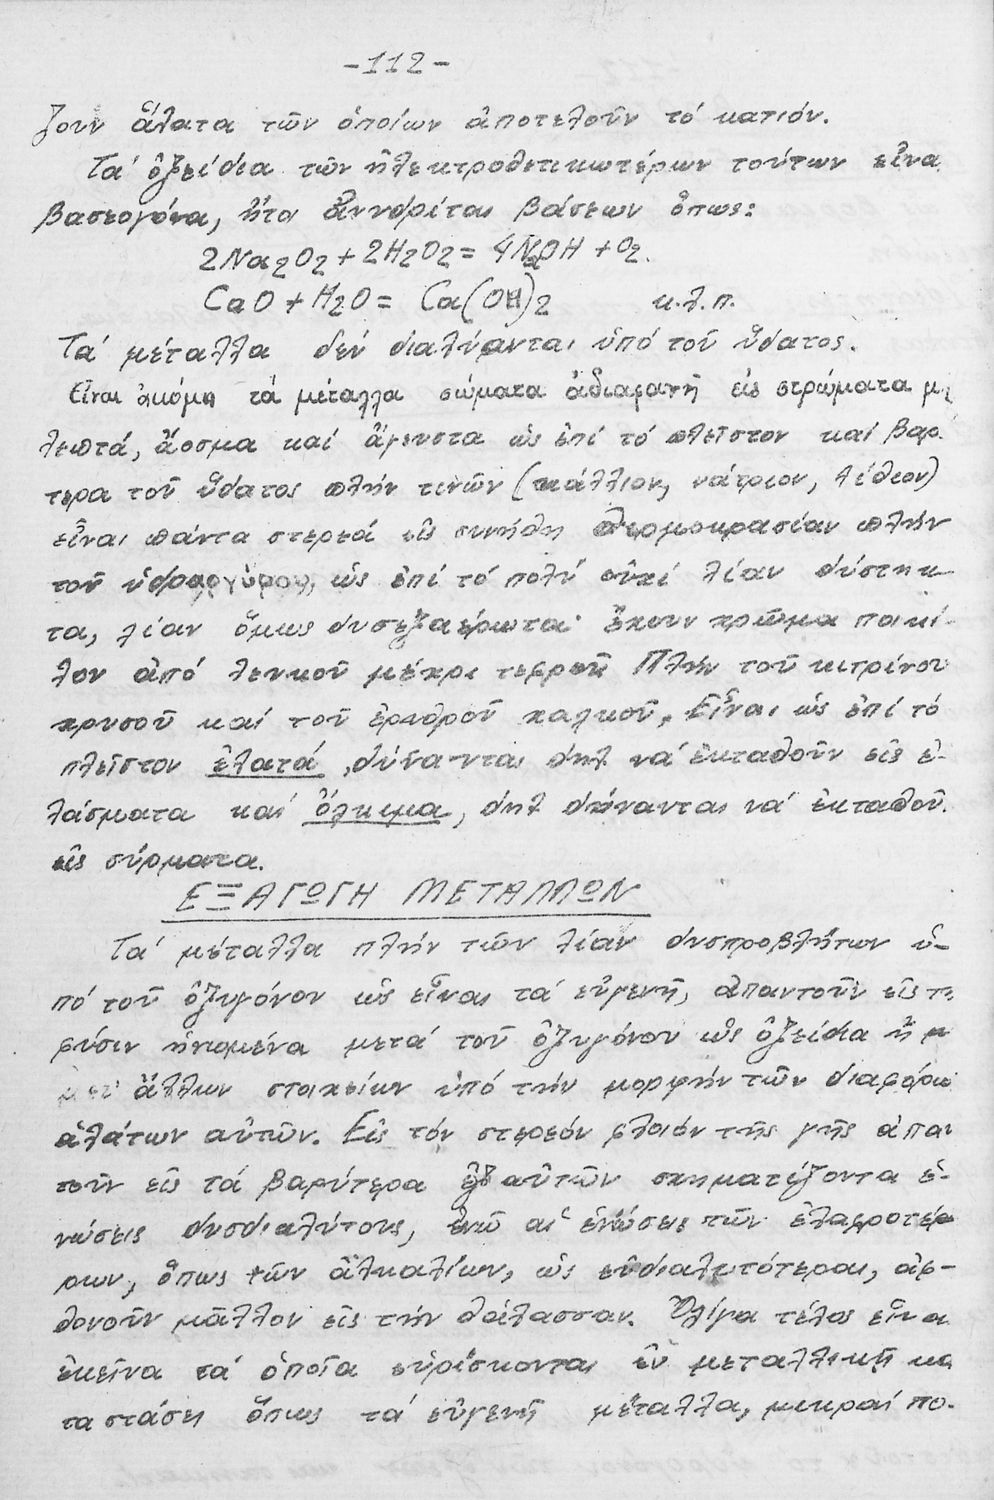 -112-
ζουν ἅλατα τῶν ὁποίων ἀποτελοῦν τό κατιόν.
Τά ὀξείδια τῶν ἠλεκτροθετικωτέρων τούτων εἶνα
βασεογόνα, ἤτοι ἀνυδρίται βάσεων ὅπως:
2Na2O2 + 2H2O2 = 4NaOH + O2.
CaO + H2O = Ca(OH)2 κ.λ.π.
Τά μέταλλα δέν διαλύονται ὑπό τοῦ ὕδατος.
Εἶναι ἀκόμη τά μέταλλα σώματα ἀδιαφανῆ εἰς στρώματα μὴ
λεπτά, ἄοσμα καί ἄγευστα ὡς ἐπί τό πλεῖστον καί βαρ.
τερα τοῦ ὕδατος πλήν τινῶν (κάλλιον, νάτριον, λίθιον)
εἶναι πάντα στερεά εἰς συνήθη θερμοκρασίαν πλήν
τοῦ ὑδραργύρου, ὡς ἐπί τό πολύ οὐχί λίαν δύστηκ
τα, λίαν ὅμως δυσεξαέρωτα· ἔχουν χρῶμα ποικί-
λον ἀπό λευκοῦ μέχρι τεφροῦ Πλήν τοῦ κιτρίνου
χρυσοῦ καί τοῦ ἐρυθροῦ χαλκοῦ. Εἶναι ὡς ἐπί τό
πλεῖστον ἐλατά, δύνα-νται δηλ νά ἐκταθοῦν εἰς ἐ-
λάσματα καί ὅλκιμα, δηλ δύνανται νά ἐκταθοῦ.
εἰς σύρματα.
ΕΞΑΓΩΓΗ ΜΕΤΑΛΛΩΝ
Τά μέταλλα πλήν τῶν λίαν δυσπροβλήτων ὑ-
πό τοῦ ὀξυγόνου ὡς εἶναι τά εὐγενῆ, ἀπαντοῦν εἰς τη
φύσιν ἡνωμένα μετά τοῦ ὀξυγόνου ὡς ὀξείδια ἤ μ
ἄλλων στοιχείων ὑπό τήν μορφήν τῶν διαφόρω
ἁλάτων αὐτῶν. Εἰς τόν στερεόν φλοιόν τῆς γῆς ἀπαν
τοῦν εἰς τά βαρύτερα ἐξ αὐτῶν σχηματίζοντα ἑ-
νώσεις δυσδιαλύτους, ἐνῶ αἱ ἑνώσεις τῶν ἐλαφροτέρ
ρων, ὅπως τῶν ἀλκαλίων, ὡς εὐδιαλυτότεραι, ἀφ-
θονοῦν μᾶλλον εἰς τήν θάλασσαν. Ὀλίγα τέλος εἶνα
ἐκεῖνα τά ὁποῖα εὑρίσκονται ἐν μεταλλικῆ κα
τα στάσει ὅπως τά εὐγενῆ μέταλλα, μικραί πο-